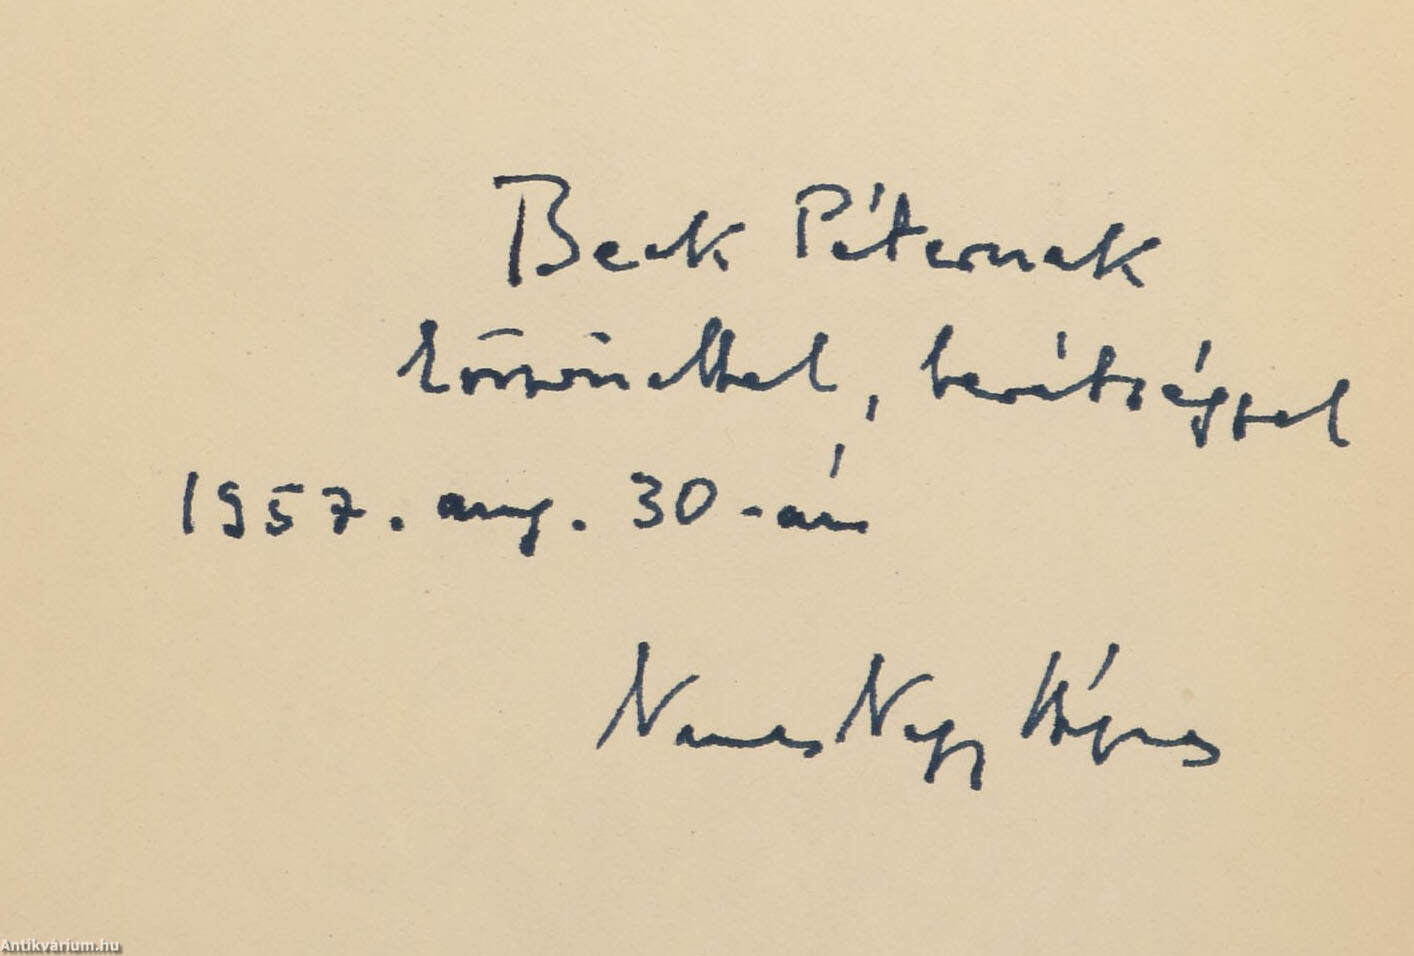 Beck Péternak
köszönettel, barátsággal
1957. aug. 30-án
Nemes Nagy Ágnes
Antikvárium.hu